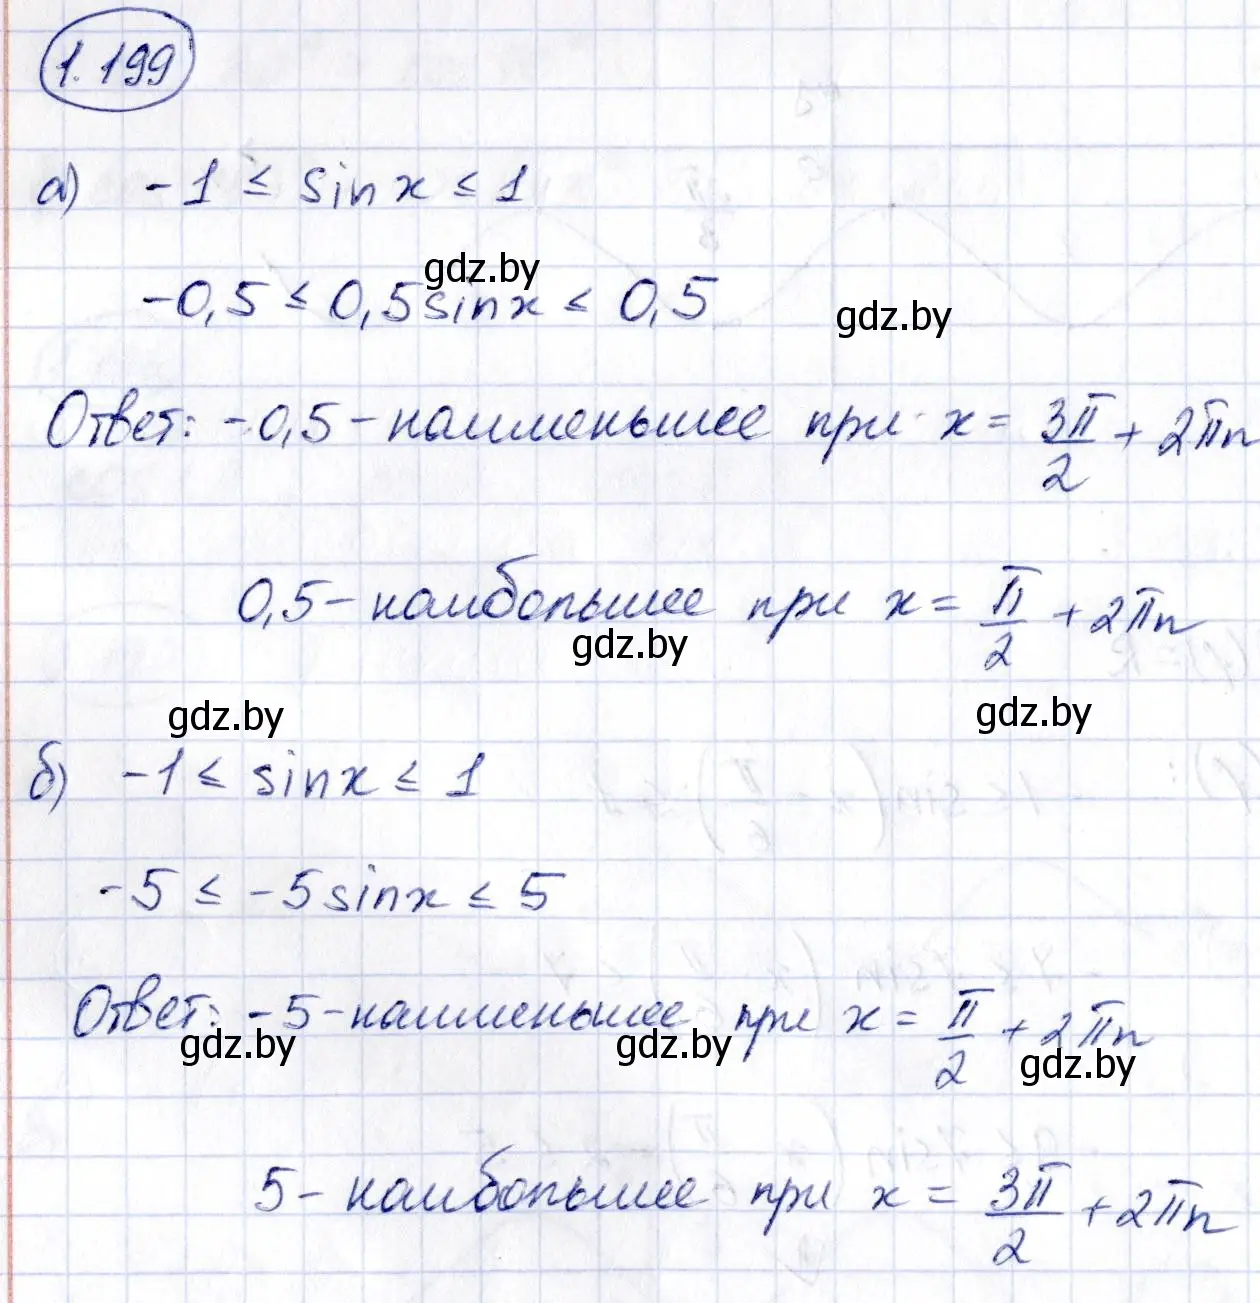 1.199
а) -1 ≤ sin x ≤ 1
gdz.by
-0,5 ≤ 0,5 sin x ≤ 0,5
gdz.by
Ответ: -0,5 - наименьшее при x = 3π/2 + 2πn
0,5 - наибольшее при x = π/2 + 2πn
gdz.by
gdz.by gdz.by
б) -1 ≤ sin x ≤ 1
-5 ≤ -5 sin x ≤ 5
Ответ: -5 - наименьшее при x = π/2 + 2πn
gdz.by gdz.by gdz.by
5 - наибольшее при x = 3π/2 + 2πn